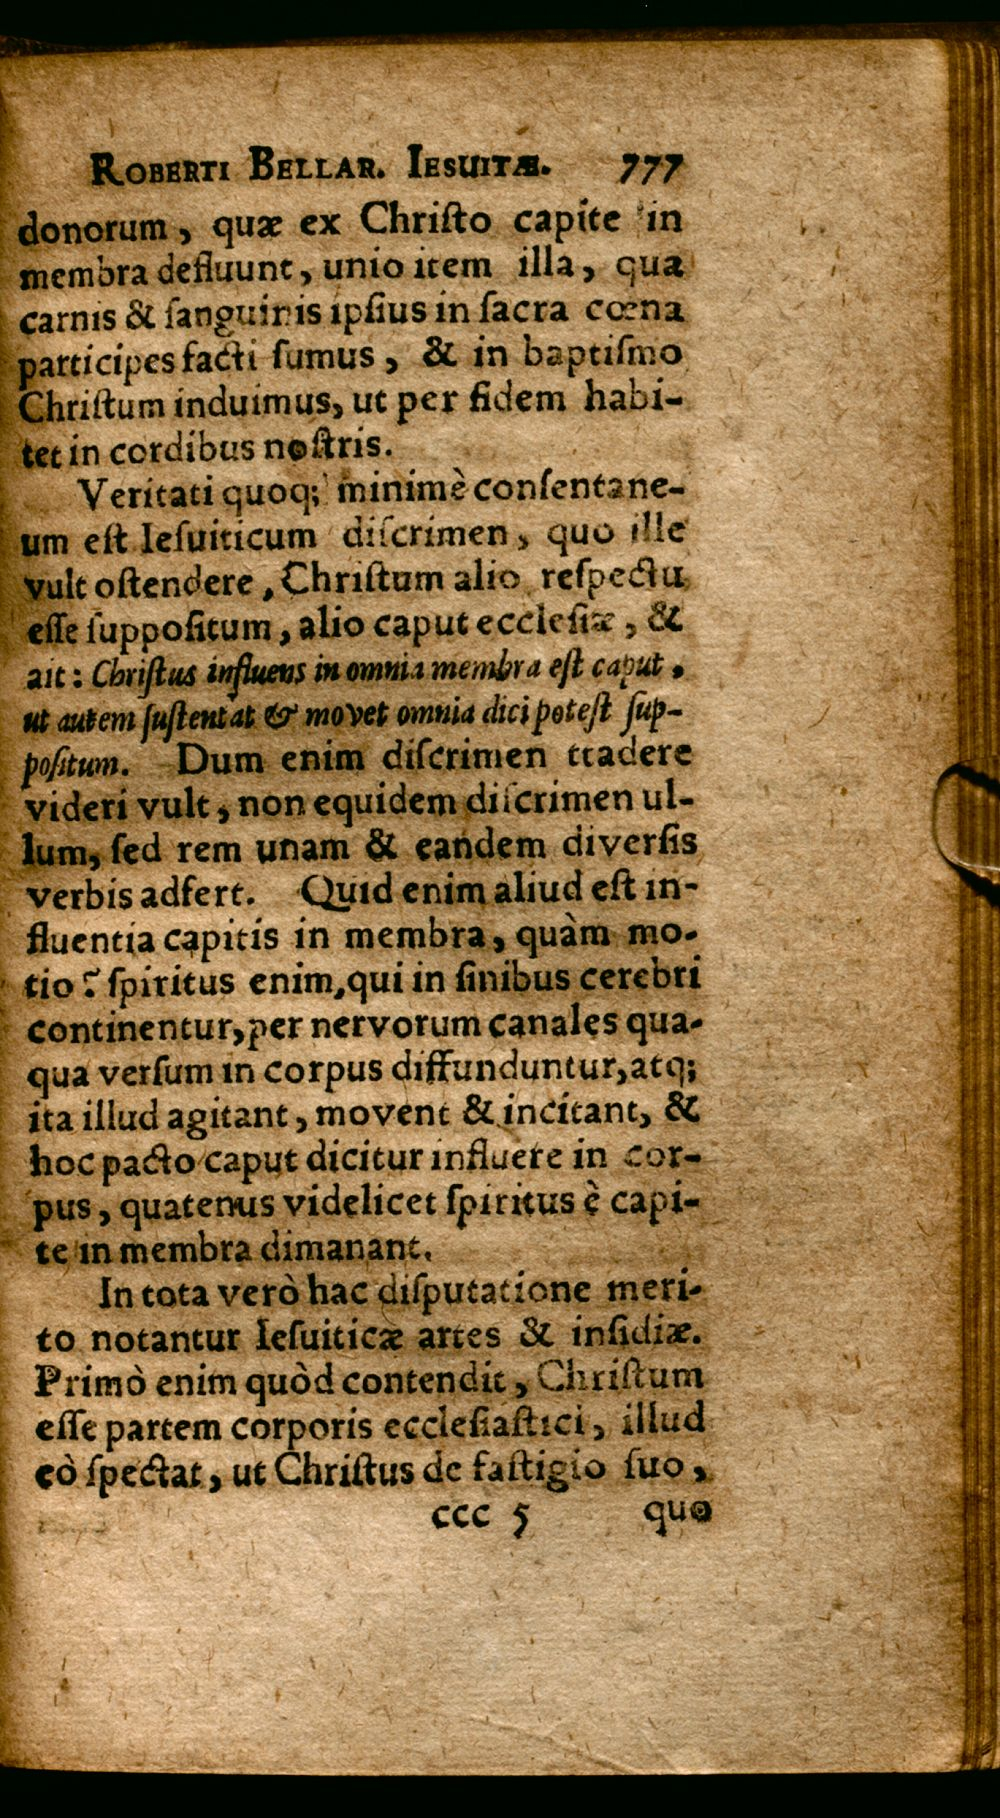 ROBERTI BELLAR. IESUITÆ. 777
donorum, quæ ex Chriſto capite in
membra defluunt, unio item illa, qua
carnis & ſanguinis ipſius in ſacra cœna
participes facti ſumus, & in baptiſmo
Chriſtum induimus, ut per fidem habi-
tet in cordibus noſtris.
Veritati quoq; minimè conſentane-
um eſt Ieſuiticum diſcrimen, quo ille
vult oſtendere, Chriſtum alio reſpectu
eſſe ſuppoſitum, alio caput eccleſiæ, &
ait: Chriſtus influens in omnia membra eſt caput,
ut autem ſuſtentat & movet omnia dici poteſt ſup-
poſitum. Dum enim diſcrimen ttadere
videri vult, non equidem diſcrimen ul-
lum, ſed rem unam & eandem diverſis
verbis adfert. Quid enim aliud eſt in-
fluentia capitis in membra, quàm mo-
tio? ſpiritus enim, qui in ſinibus cerebri
continentur, per nervorum canales qua-
qua verſum in corpus diffunduntur, atq;
ita illud agitant, movent & incitant, &
hoc pacto caput dicitur influere in cor-
pus, quatenus videlicet ſpiritus è capi-
te in membra dimanant.
In tota verò hac diſputatione meri-
to notantur Ieſuiticæ artes & inſidiæ.
Primò enim quòd contendit, Chriſtum
eſſe partem corporis eccleſiaſtici, illud
eò ſpectat, ut Chriſtus de faſtigio ſuo,
ccc 5 quo